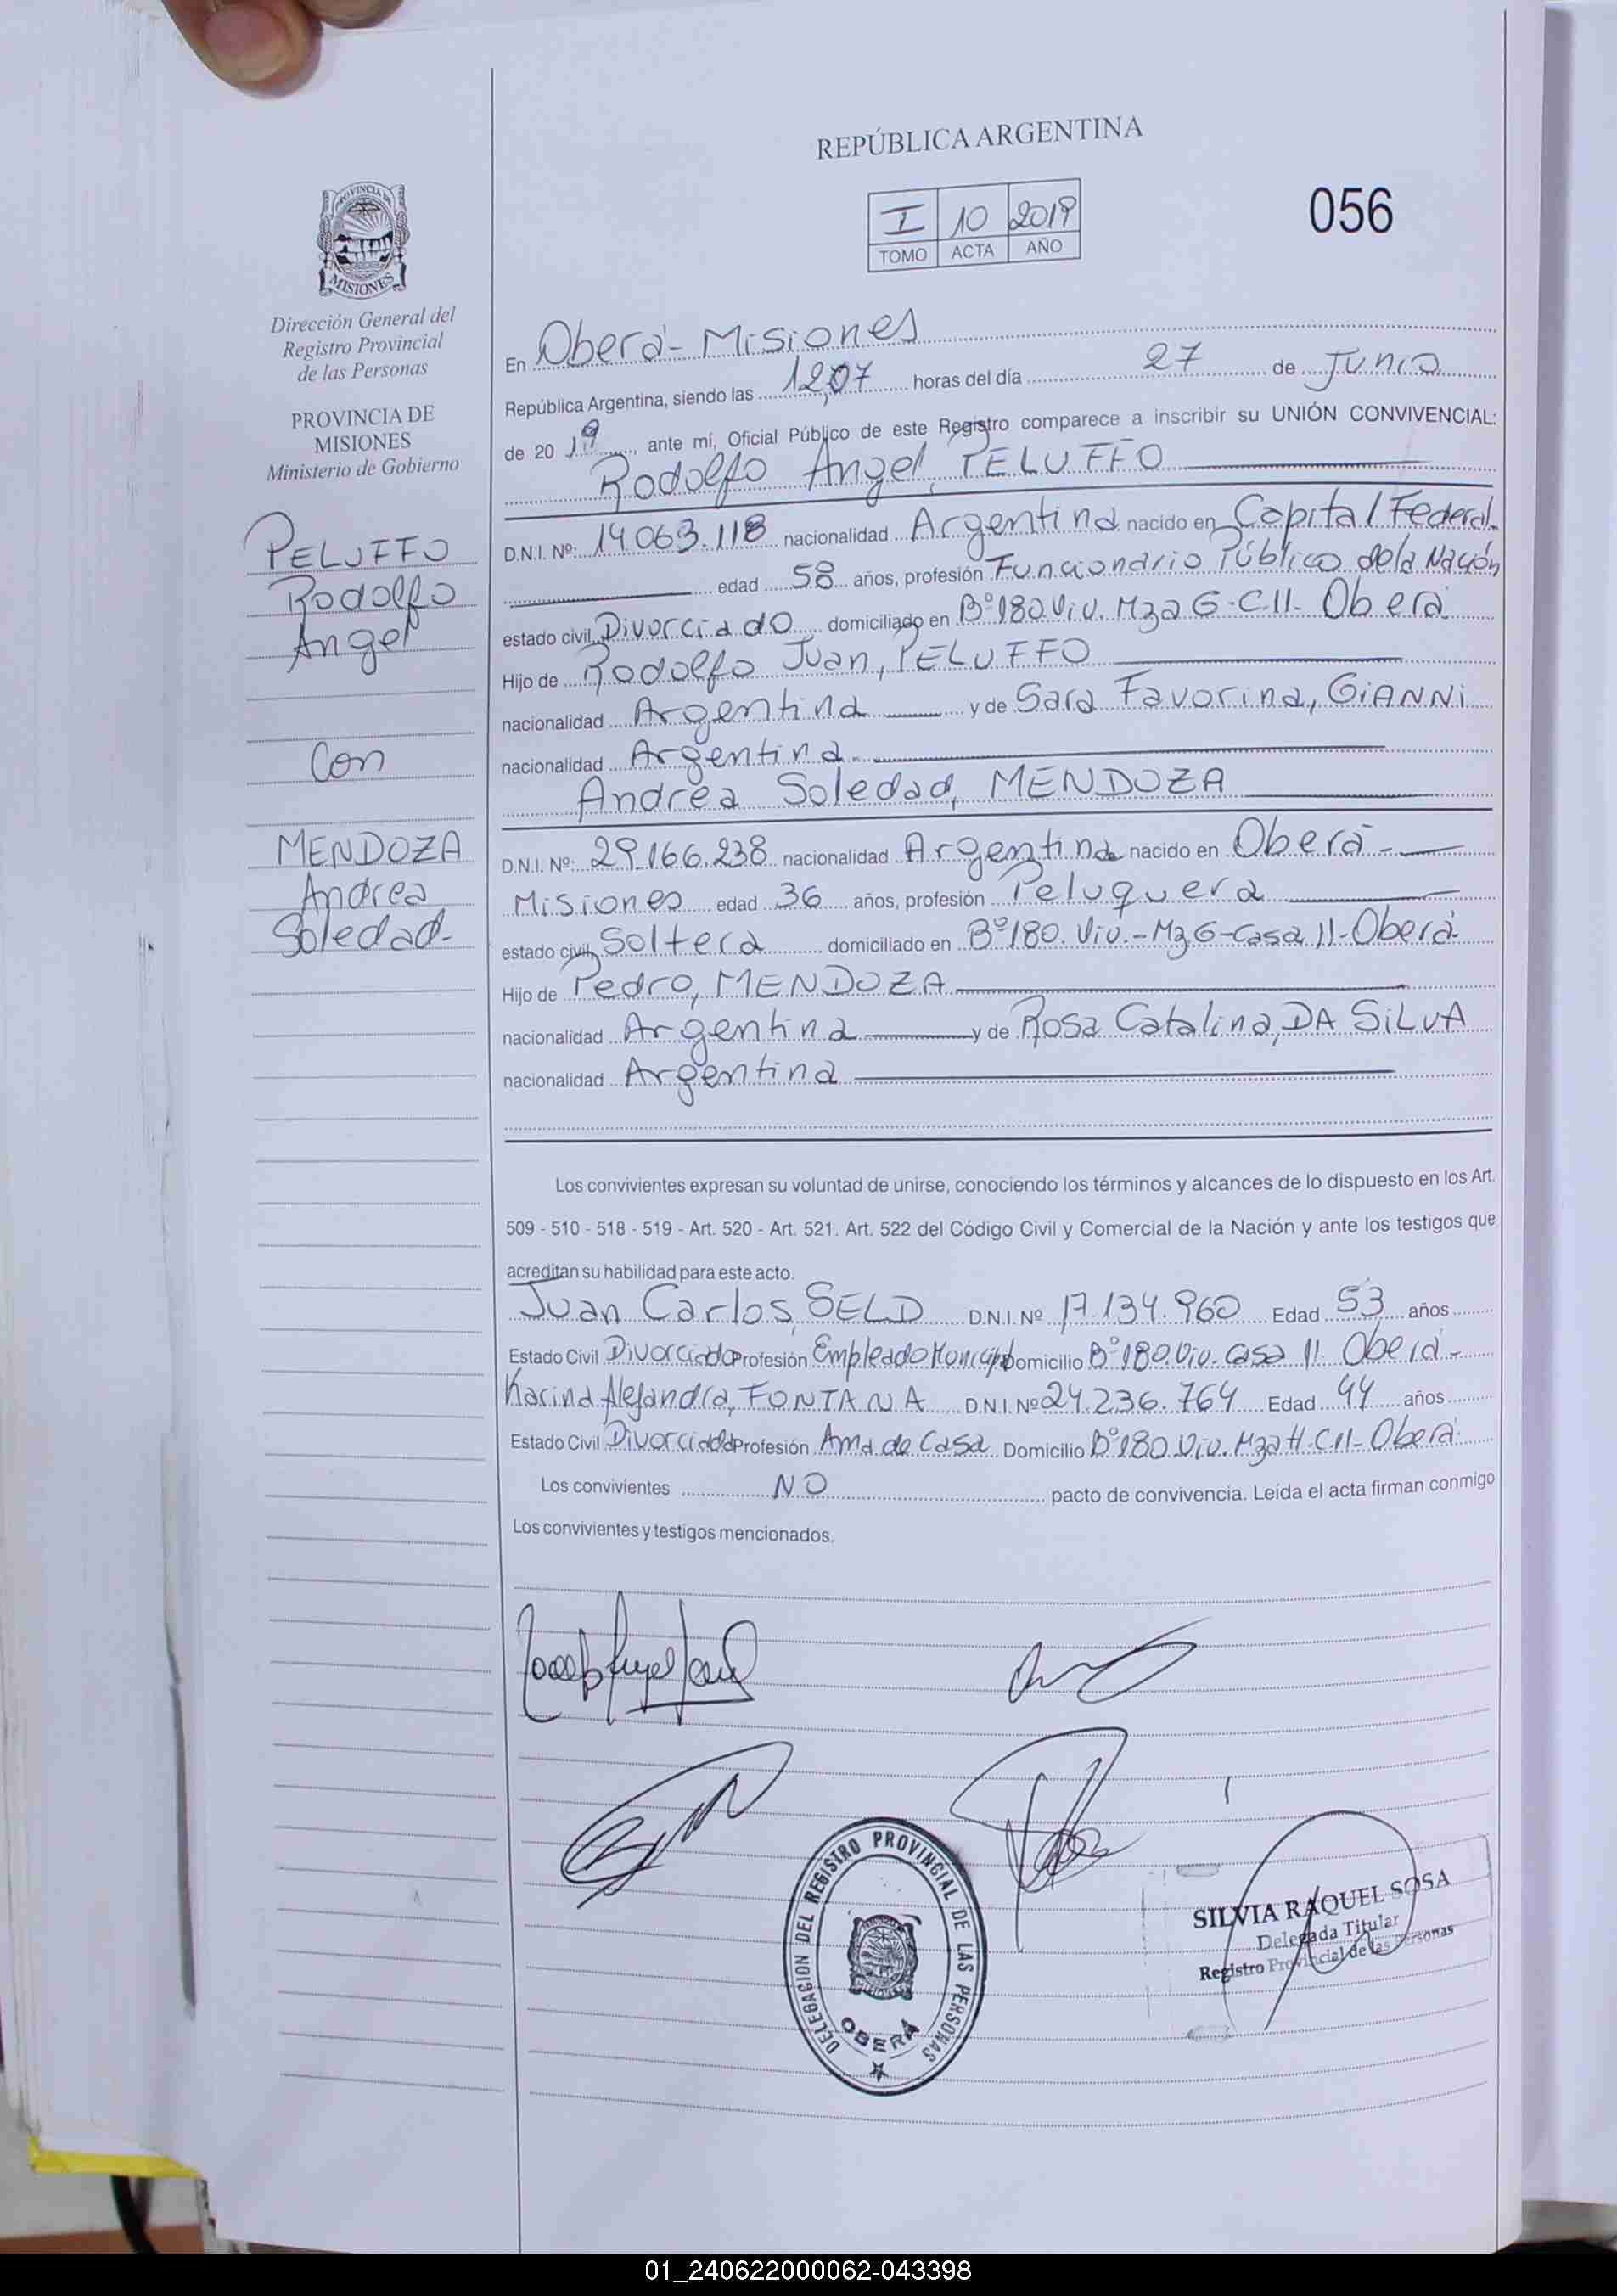 REPÚBLICA ARGENTINA
I 10 2019
TOMO ACTA AÑO
056
PROVINCIA DE
MISIONES
Dirección General del
Registro Provincial
de las Personas
PROVINCIA DE
MISIONES
Ministerio de Gobierno
PELUFFO
Rodolfo
Angel
Con
MENDOZA
Andrea
Soledad-
En Oberá- Misiones
República Argentina, siendo las 12,07 horas del día 27 de Junio
de 20 19, ante mí, Oficial Público de este Registro comparece a inscribir su UNIÓN CONVIVENCIAL:
Rodolfo Angel, PELUFFO
D.N.I. Nº: 14.063.118 nacionalidad Argentina nacido en Capital Federal-
edad 58 años, profesión Funcionario Público de la Nación
estado civil Divorciado domiciliado en Bº180.Viv. Mza G-C11- Oberá
Hijo de Rodolfo Juan, PELUFFO
nacionalidad Argentina y de Sara Favorina, GIANNI
nacionalidad Argentina
Andrea Soledad, MENDOZA
D.N.I. Nº: 29.166.238 nacionalidad Argentina nacido en Oberá-
Misiones edad 36 años, profesión Peluquera
estado civil Soltera domiciliado en Bº180. Viv.-Mz G-Casa 11-Oberá
Hijo de Pedro, MENDOZA
nacionalidad Argentina y de Rosa Catalina, DA SILVA
nacionalidad Argentina
Los convivientes expresan su voluntad de unirse, conociendo los términos y alcances de lo dispuesto en los Art.
509 - 510 - 518 - 519 - Art. 520 - Art. 521. Art. 522 del Código Civil y Comercial de la Nación y ante los testigos que
acreditan su habilidad para este acto.
Juan Carlos, SELD D.N.I. Nº 17.134.960 Edad 53 años
Estado Civil Divorciado Profesión Empleado Municip Domicilio Bº180.Viv. Casa 11. Oberá-
Karina Alejandra, FONTANA D.N.I. Nº 24.236.764 Edad 44 años
Estado Civil Divorciada Profesión Ama de Casa Domicilio Bº180.Viv. Mza H-C11- Oberá
Los convivientes NO pacto de convivencia. Leída el acta firman conmigo
Los convivientes y testigos mencionados.
DELEGACION DEL REGISTRO PROVINCIAL DE LAS PERSONAS
OBERA
SILVIA RAQUEL SOSA
Delegada Titular
Registro Provincial de las Personas
01_240622000062-043398